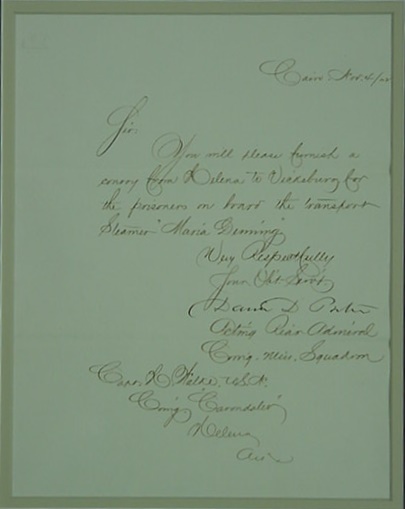 Cairo Nov. 4/62
Sir.
You will please furnish a
convoy from Helena to Vicksburg for
the prisoners on board the transport
Steamer "Maria Denning"
Very Respectfully
Your Obt Servt
David D Porter
Acting Rear Admiral
Comg. Miss. Squadron
Capt. H. Walke. U.S.N.
Comg "Carondelet"
Helena
Ark